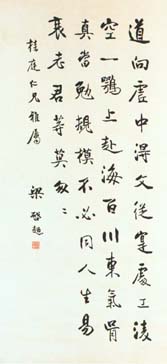 道向虛中得文從實處工凌
空一鶚上赴海百川東氣骨
真當勉規模不必同人生易
衰老君等莫匆〻
桂庭仁兄雅屬
梁啟超